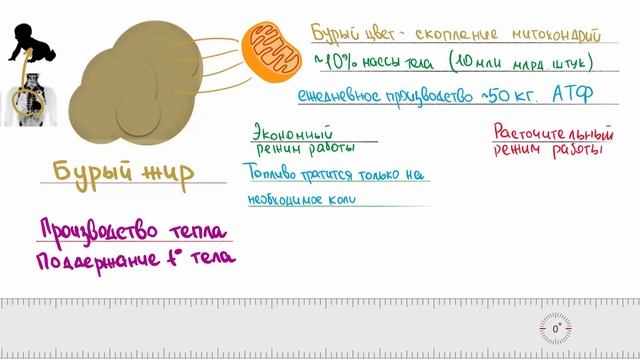 Бурый цвет - скопление митохондрий
~10% массы тела (10 млн млрд. штук)
ежедневное производство ~50 кг. АТФ
Экономный
режим работы
Расточительный
режим работы
Бурый жир
Топливо тратится только на
необходимое коли
Производство тепла
Поддержание t° тела
0°